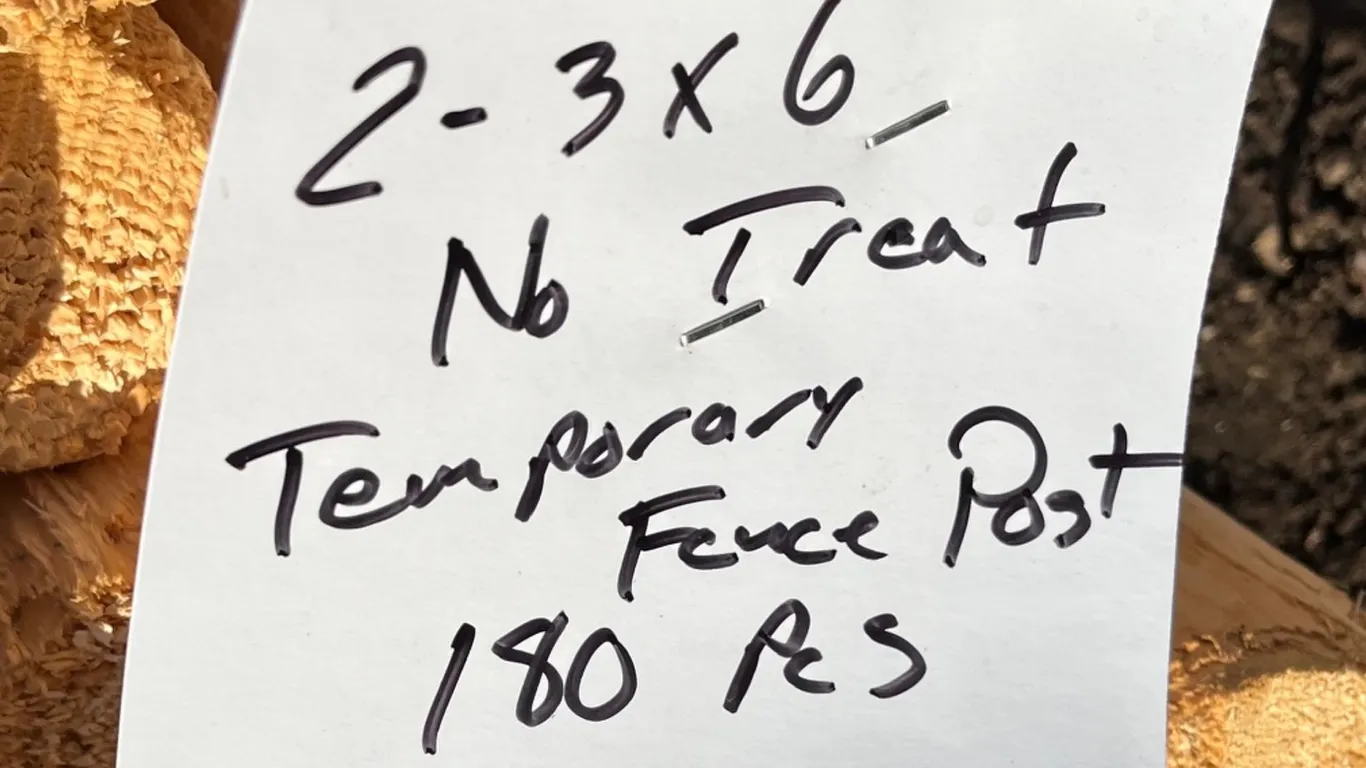 2-3x6
No Treat
Temporary
Fence Post
180 Pcs